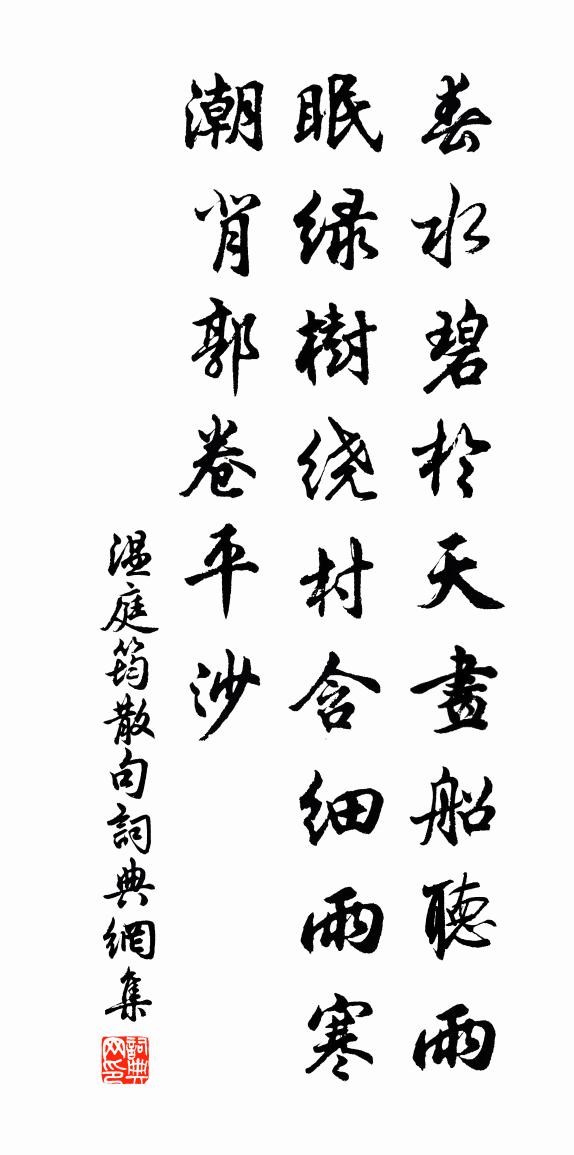 春水碧於天畫船聽雨
眠绿樹绕村含细雨寒
潮背郭卷平沙
温庭筠散句詞典網集
詞典网印